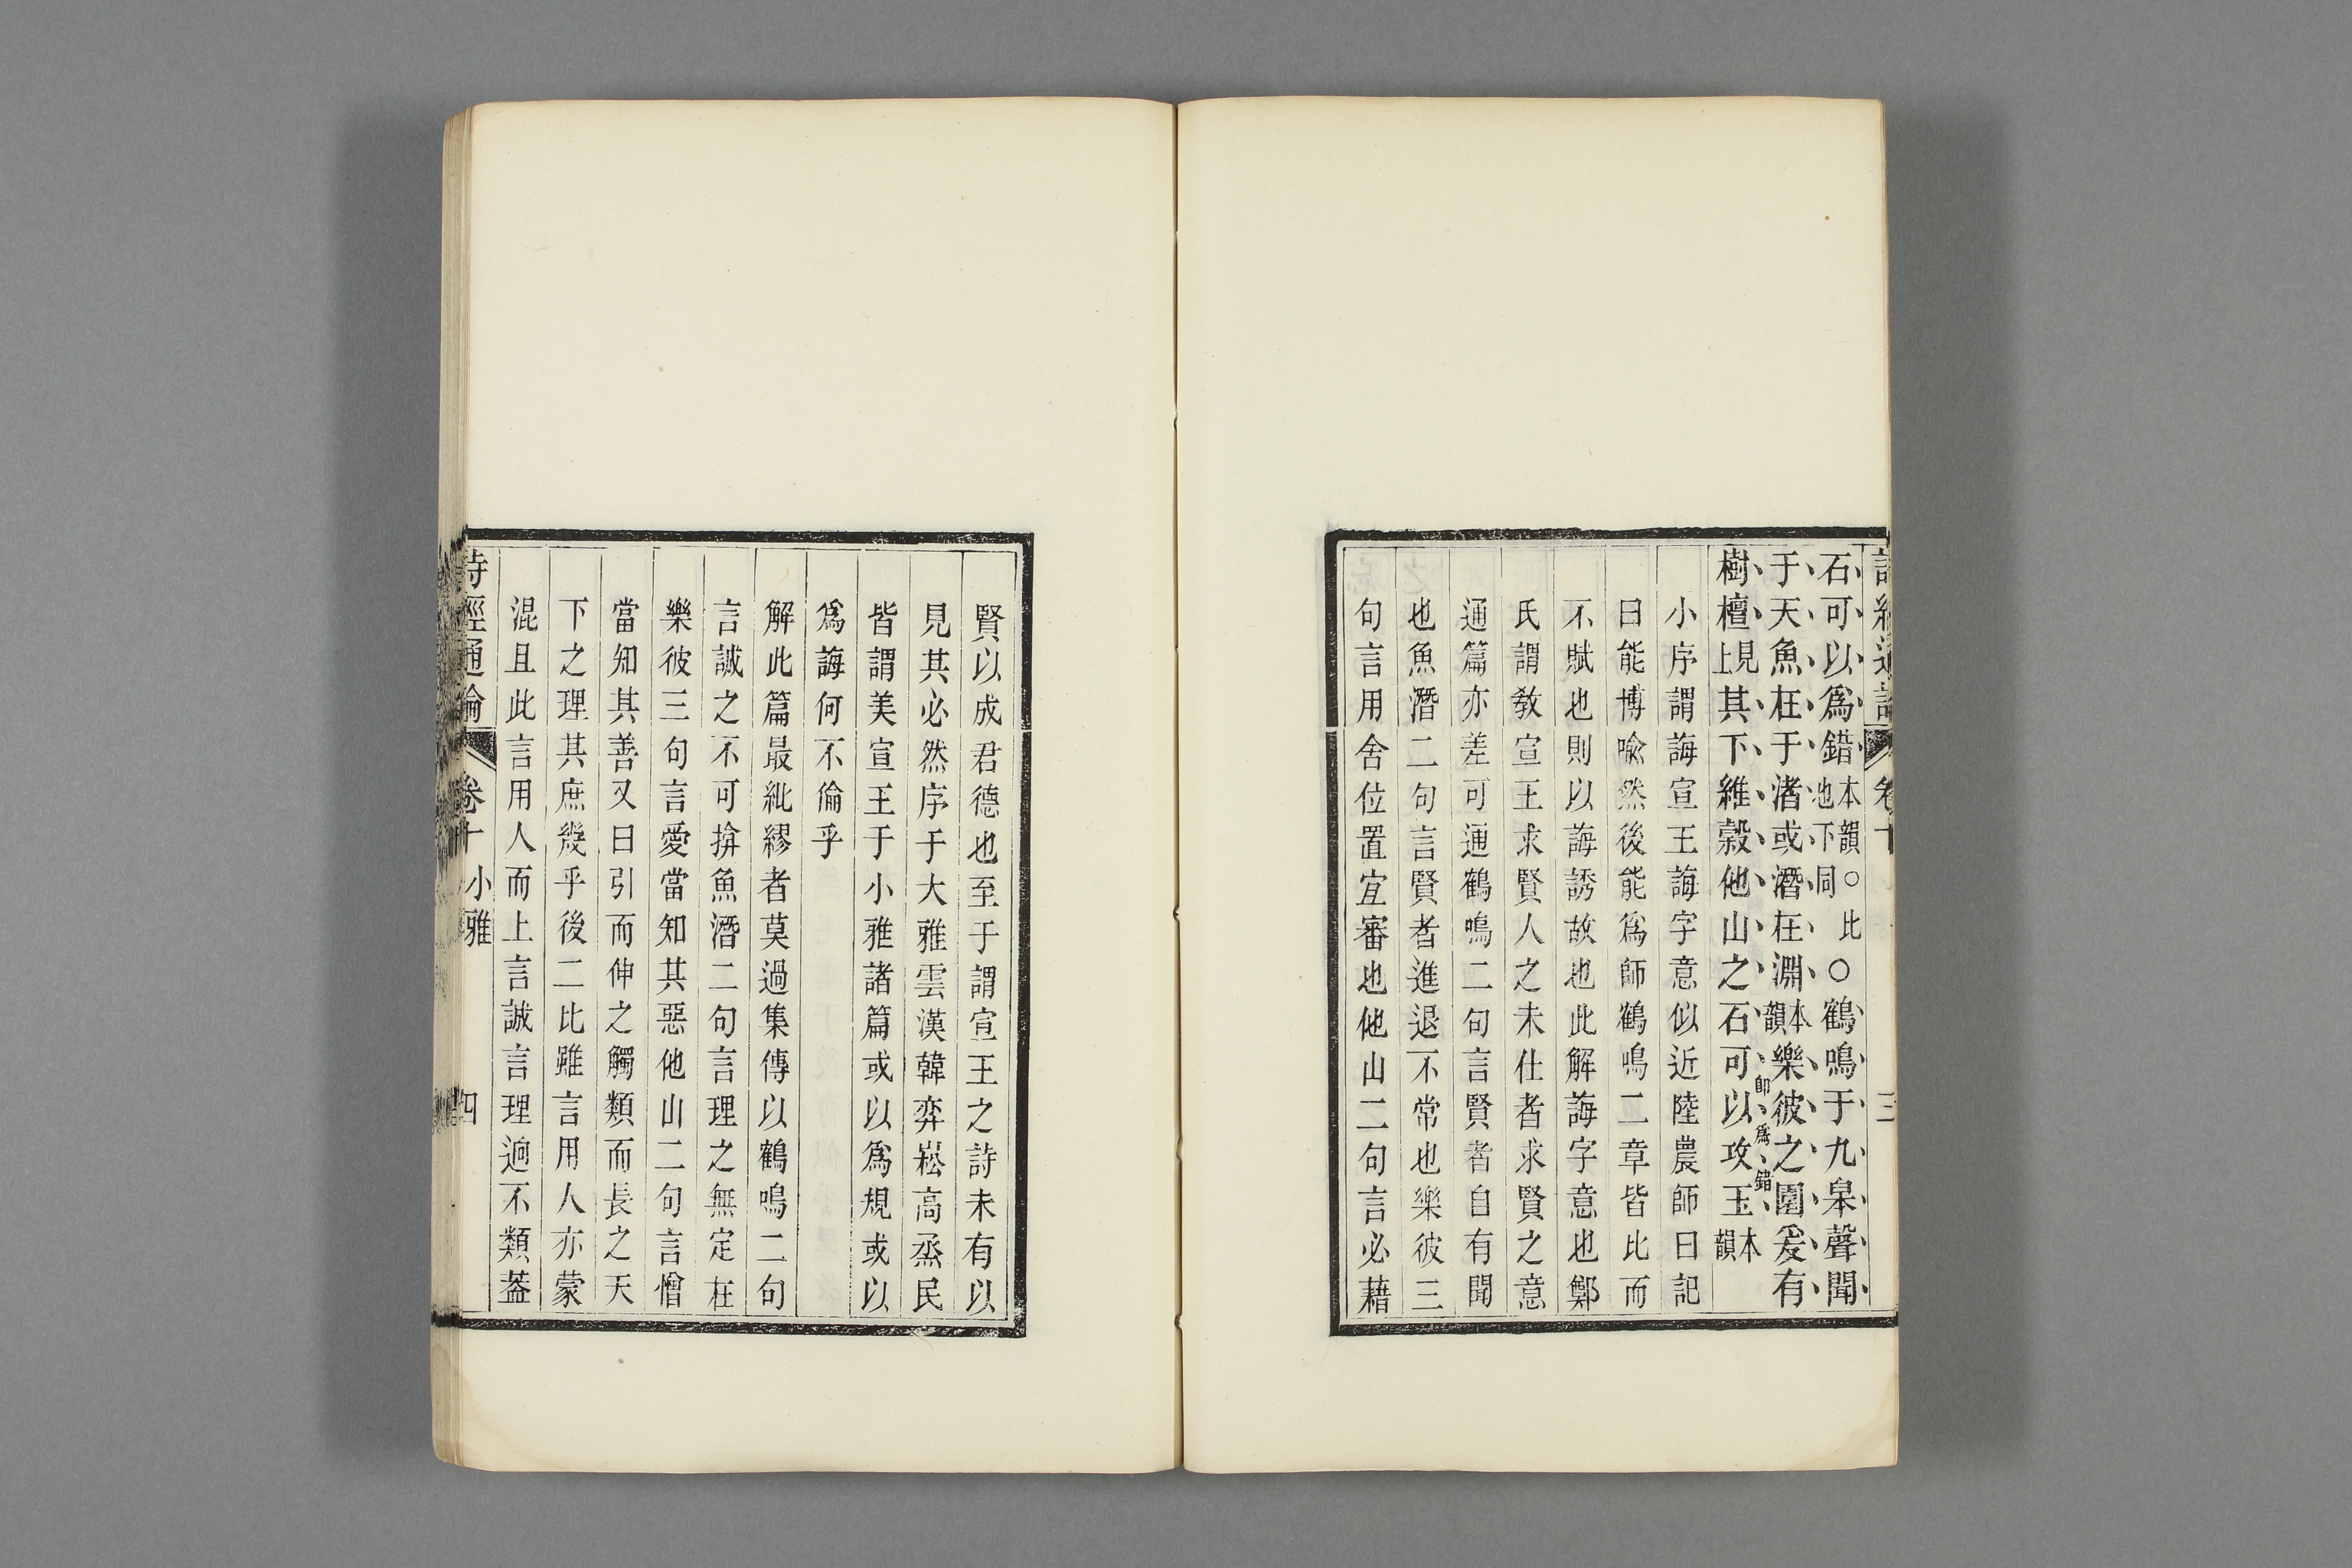 詩經通論 卷十 三
石可以爲錯本韻○比也下同○鶴鳴于九皋聲聞
于天魚在于渚或潛在淵本韻樂彼之園爰有
樹檀見上其下維榖他山之石可以攻玉本韻
卽爲錯
小序謂誨宣王誨字意似近陸農師曰記
曰能博喻然後能爲師鶴鳴二章皆比而
不賦也則以誨誘故也此解誨字意也鄭
氏謂教宣王求賢人之未仕者求賢之意
通篇亦差可通鶴鳴二句言賢者自有聞
也魚潛二句言賢者進退不常也樂彼三
句言用舍位置宜審也他山二句言必藉
賢以成君德也至于謂宣王之詩未有以
見其必然序于大雅雲漢韓弈崧高烝民
皆謂美宣王于小雅諸篇或以爲規或以
爲誨何不倫乎
解此篇最紕繆者莫過集傳以鶴鳴二句
言誠之不可揜魚潛二句言理之無定在
樂彼三句言愛當知其惡他山二句言憎
當知其善又曰引而伸之觸類而長之天
下之理其庶幾乎後二比雖言用人亦蒙
混且此言用人而上言誠言理迥不類葢
詩經通論 卷十 小雅 四